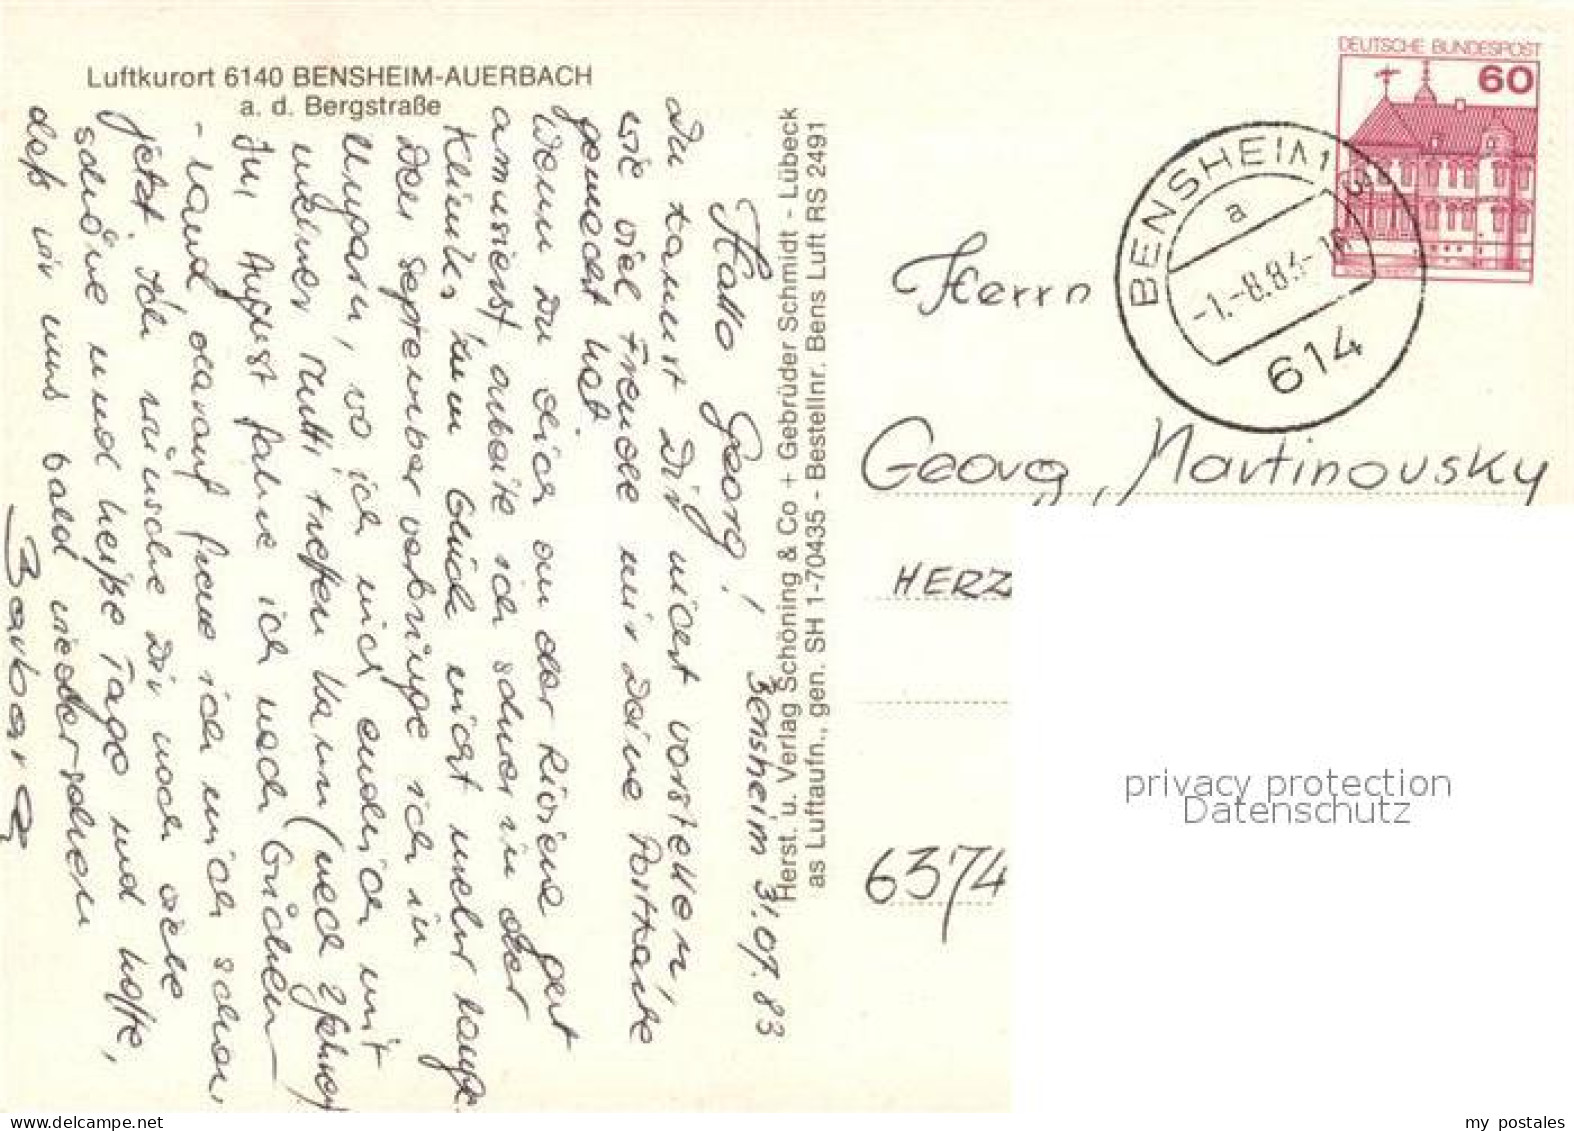 Luftkurort 6140 BENSHEIM-AUERBACH
a. d. Bergstraße
Bensheim 31.07.83
Hallo Georg!
Du kannst Dir nicht vorstellen
wie viel Freude mir Deine Postkarte
gemacht hat.
Wenn Du dich an der Riviera gut
amusierst arbeite ich schwer in der
Klinik, zum Glück nicht mehr lange.
Den September verbringe ich in
Ungarn, wo ich mich endlich mit
meiner Mutti treffen kann (nach 2 Jahren)
Im August fahre ich nach Griechen
-land, darauf freue ich mich schon
jetzt. Ich wünsche Dir noch viele
schöne und heiße Tage und hoffe,
daß wir uns bald wiedersehen
Barbara
Herst. u. Verlag Schöning & Co + Gebrüder Schmidt - Lübeck
as Luftaufn., gen. SH 1-70435 - Bestellnr. Bens Luft RS 2491
DEUTSCHE BUNDESPOST
60
BENSHEIM 1
a
-1.-8.83-
614
Herrn
Georg Martinovsky
HERZ
6374
privacy protection
Datenschutz
my postales